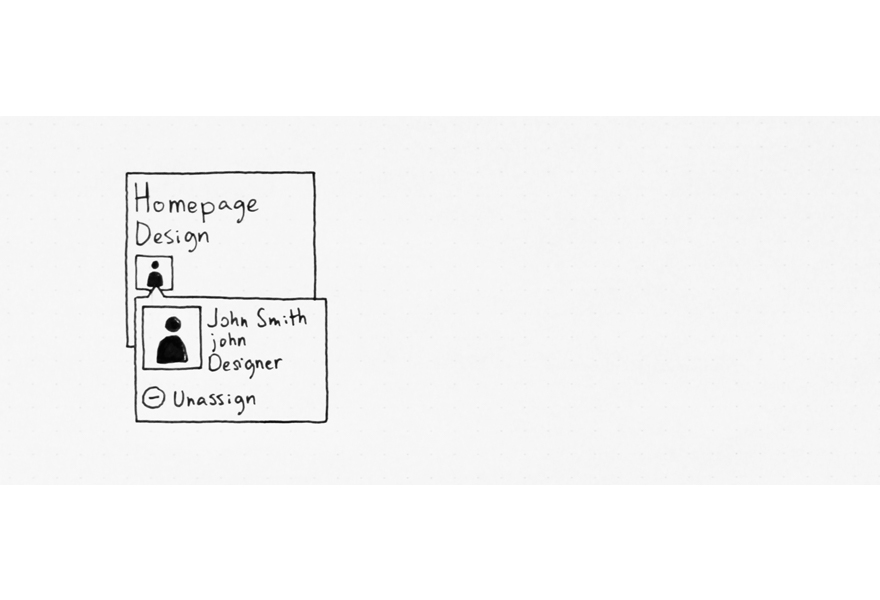 Homepage
Design
John Smith
john
Designer
Unassign